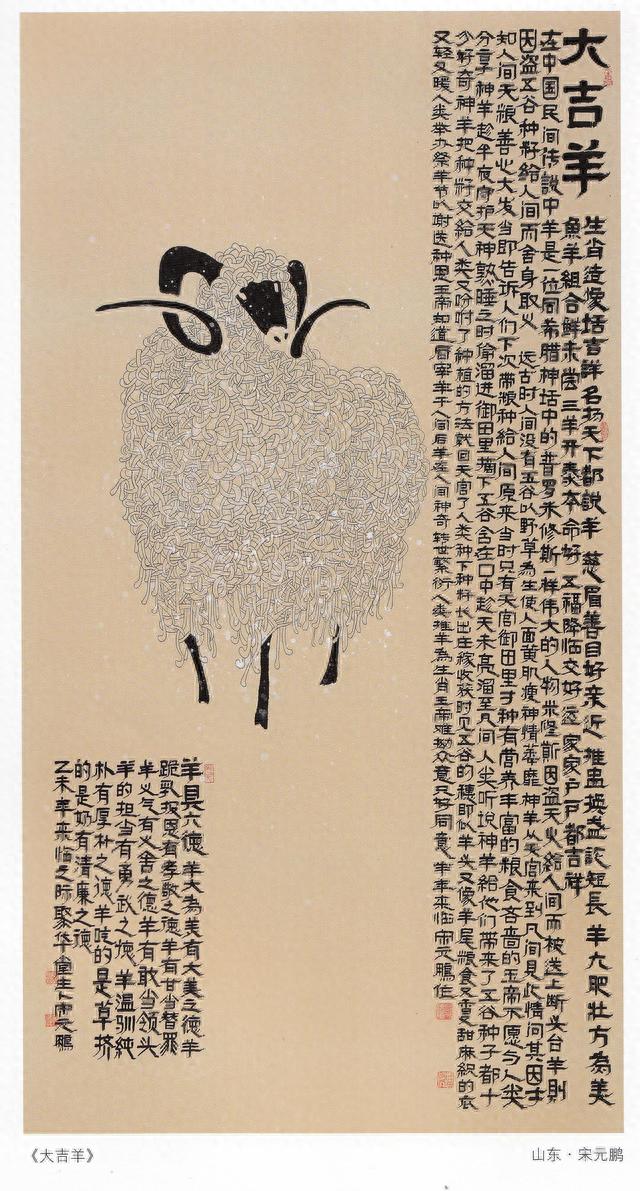 大吉羊
生肖造像话吉祥名扬天下都説羊 慈眉善目好亲近 推盅换盏论短長 羊大肥壮方為美
魚羊組合鮮未尝三羊开泰本命好 五福降临交好运家家户户都吉祥
在中国民间传説中羊是一位同希腊神话中的普罗米修斯一样伟大的人物米修斯因盗天火給人间而被送上断头台羊則
因盗五谷种籽給人间而舍身取义 远古时人间没有五谷以野草為生使人面黄肌瘦神情萎靡神羊从天宫来到凡间見此情问其因才
知人间无粮善心大发当即告诉人们下次带粮种給人间原来当时只有天宫御田里才种有营养丰富的粮食吝啬的玉帝不愿与人类
分享神羊趁半夜守护天神熟睡之时偷溜进御田里摘下五谷含在口中趁天未亮溜至凡间人类听说神羊給他们带来了五谷种子都十
分好奇神羊把种籽交給人类又吩咐了种植的方法就回天宫了人类种下种籽长出庄稼收获时见五谷的穗即似羊头又像羊尾粮食又香又甜麻織的衣
又轻又暖人类举办祭羊节以谢送种恩玉帝知道后宰羊于人间后羊在人间神奇转世繁衍人类推羊為生肖玉帝难拗众意只好同意 羊年来临宋元鵬作
羊具六德 羊大為美有大美之德羊
跪乳报恩有孝敬之德羊有甘当替罪
羊义气有义舍之德羊有敢当领头
羊的担当有勇武之德 羊温驯純
朴有厚朴之德羊吃的是草挤
的是奶有清廉之德
乙未年来临之际聚华堂主人宋元鵬
《大吉羊》
山东·宋元鹏